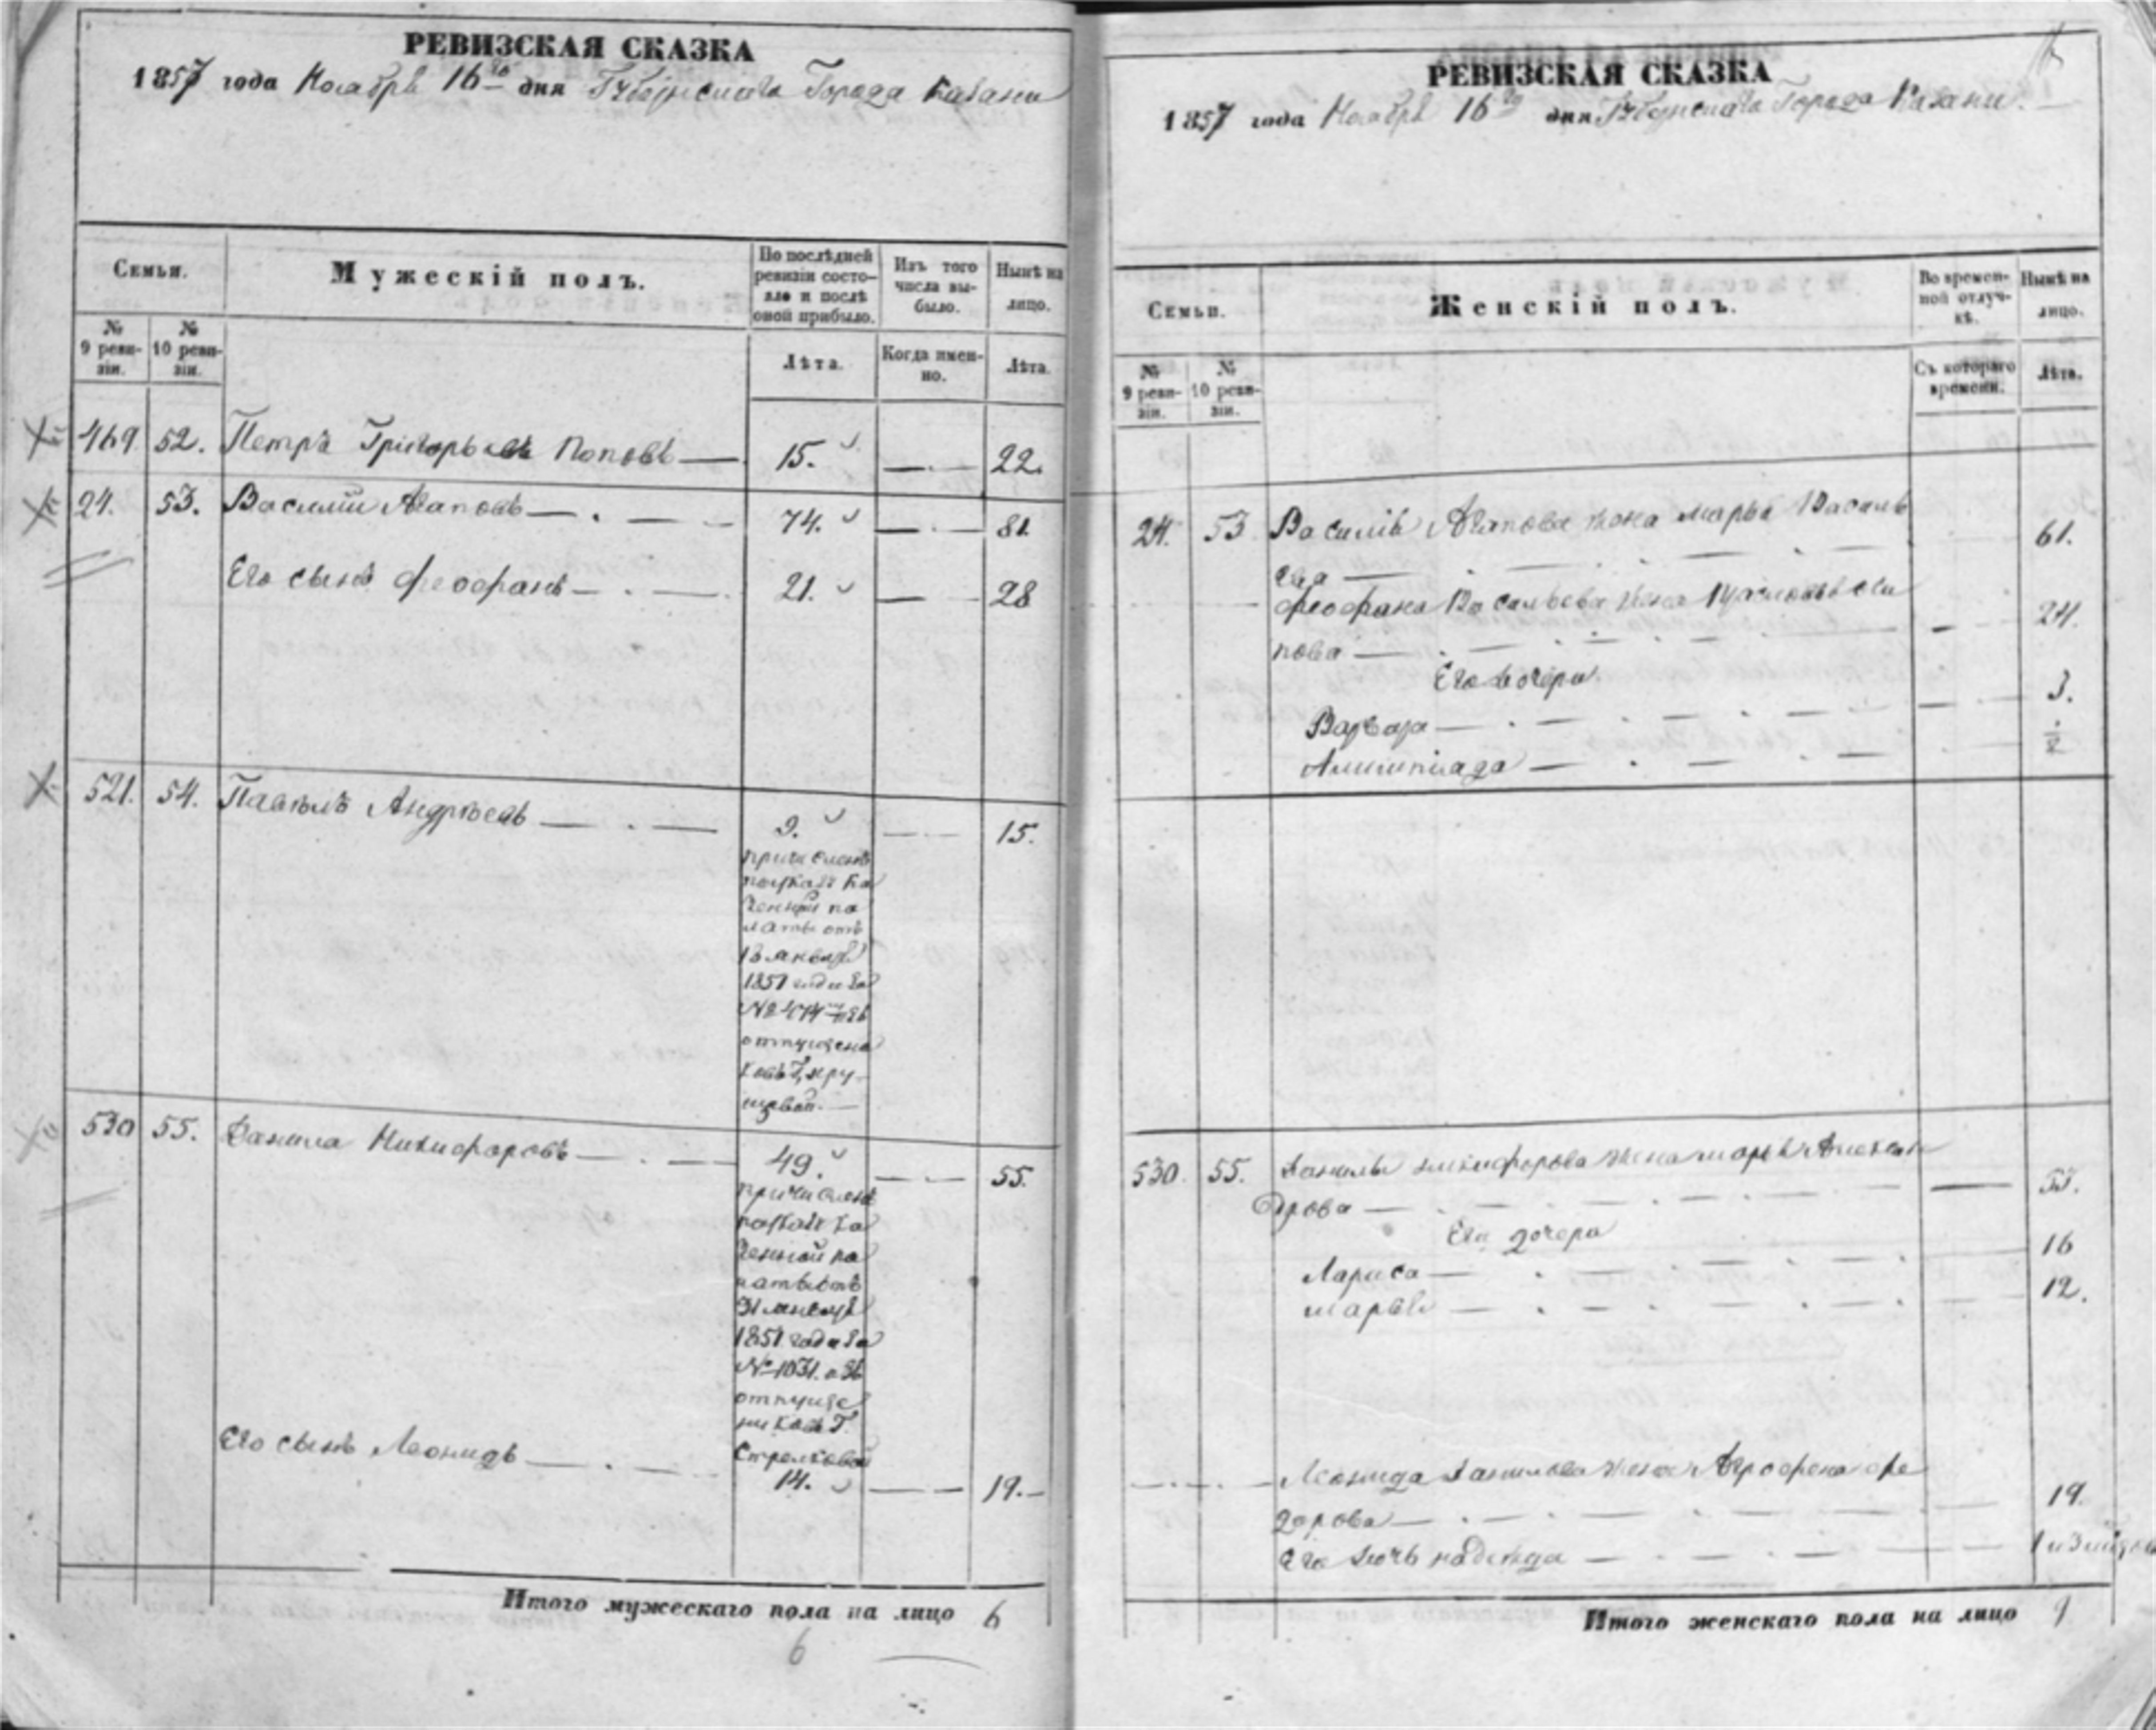 РЕВИЗСКАЯ СКАЗКА
1857 года Ноября 16го дня Губернскаго Города Казани
Семьи.
Мужескій полъ.
По послѣдней ревизіи состояло и послѣ оной прибыло.
Изъ того числа выбыло.
Нынѣ на лицо.
№ 9 ревизіи.
№ 10 ревизіи.
Лѣта.
Когда именно.
Лѣта.
469 52. Петръ Григорьевъ Поповъ 15. 22.
24. 53. Василій Агаповъ 74. 81.
Его сынъ Феофанъ 21. 28
521. 54. Павелъ Андреевъ 9. 15.
причисленъ
по указу Ка
зенной па
латы отъ
13 января
1851 года за
№ изъ
отпущена
ковъ Г,
530 55. Данила Никифоровъ 49. 55.
причисленъ
по указу Ка
зенной па
латы отъ
31 января
1851 года за
№ 1031. изъ
отпуще
никовъ Г.
Стрелковой
Его сынъ Леонидъ 14. 19.
Итого мужескаго пола на лицо 6
6
РЕВИЗСКАЯ СКАЗКА
1857 года Ноября 16го дня Губернскаго Города Казани.
Семьи.
Женскій полъ.
Во временной отлучкѣ.
Нынѣ на лицо.
№ 9 ревизіи.
№ 10 ревизіи.
Съ котораго времени.
Лѣта.
24. 53 Василія Агапова жена Марья Василь
ева 61.
Феофана Васильева жена Оси
пова 24.
Его дочери
Варвара 3.
Алимпіада ½
530. 55. Данилы Никифорова жена Марья Алексан
дрова 53.
Его дочери
Лариса 16
Марья 12.
Леонида Данилова жена Агрофена Фе
дорова 19.
Его дочь Надежда 1
Итого женскаго пола на лицо 9